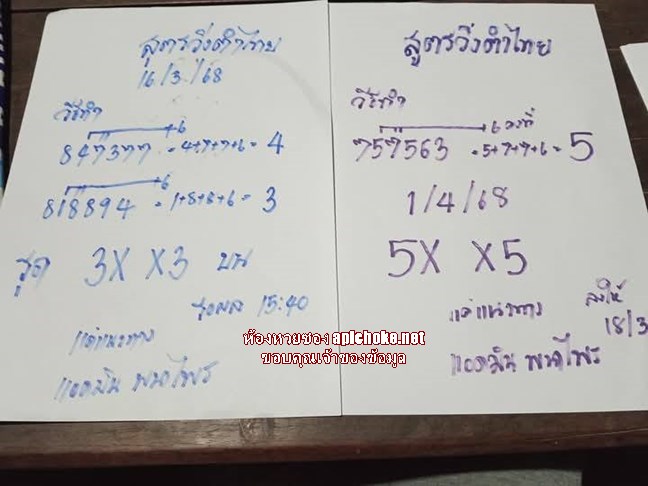 สูตรวิ่งดำไทย
16/3/68
วิธีทำ
6
847377 = 4+7+7+6 = 4
6
818894 = 1+8+8+6 = 3
ชุด 3X X3 บน
รอผล 15:40
แค่แนวทาง
แอดมิน พนาไพร
สูตรวิ่งดำไทย
วิธีทำ
6 คงที่
757563 = 5+7+7+6 = 5
1/4/68
5X X5
แค่แนวทาง
ลงให้
18/3
แอดมิน พนาไพร
ห้องหวยของ apichoke.net
ขอบคุณเจ้าของข้อมูล